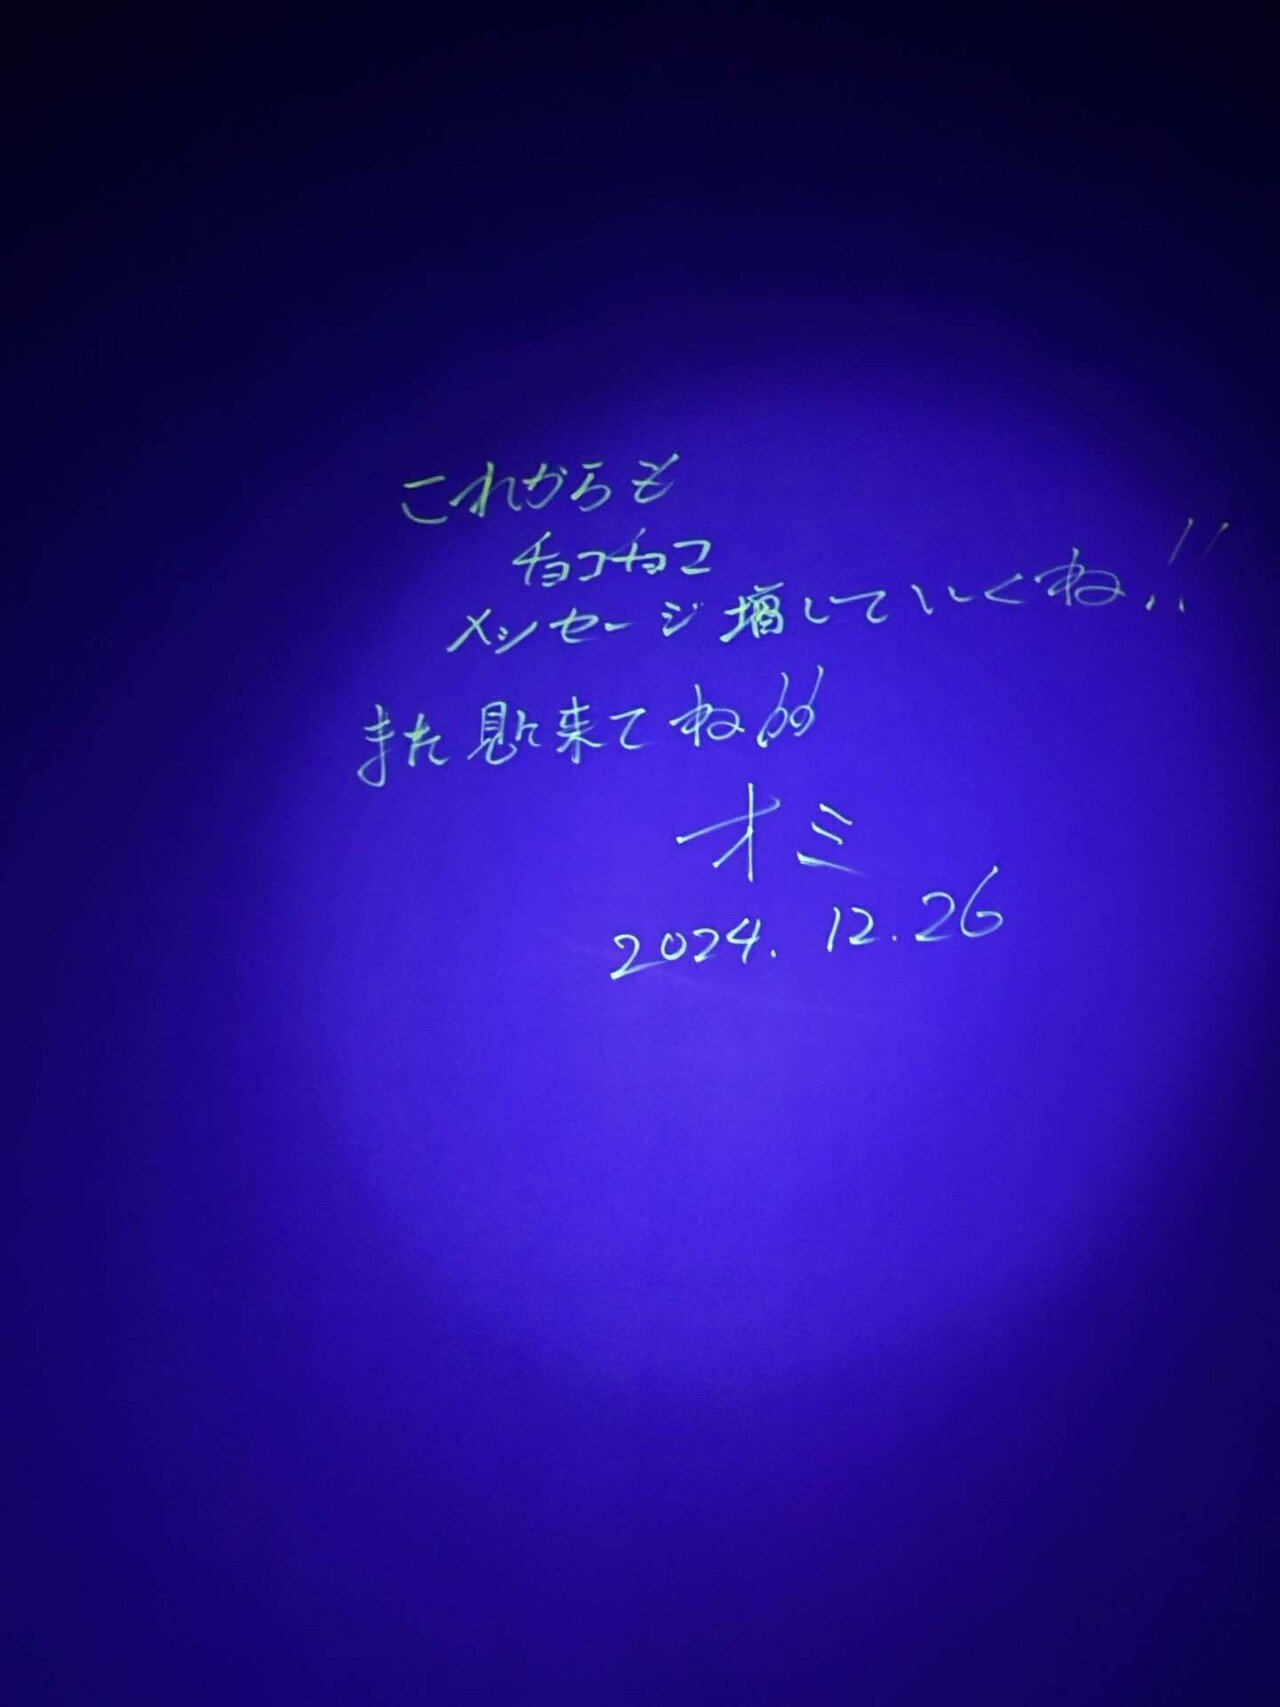 これからも
チョコチョコ
メッセージ増していくね!!
また見に来てね!!
オミ
2024. 12.26